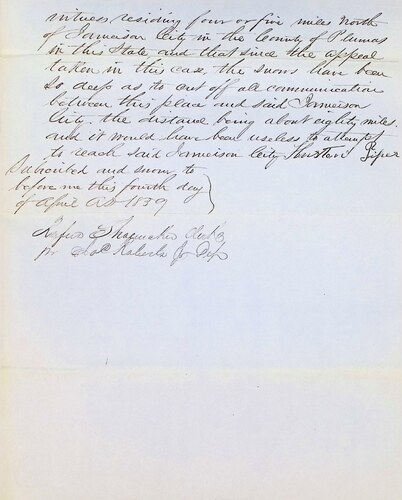 witness, residing four or five miles North
of Jameison City in the County of Plumas
in this State, and that since the appeal
taken in this case, the snows have been
so deep as to cut off all communication
between this place and said Jameison
City, the distance being about eighty miles.
and it would have been useless to attempt
to reach said Jameison City Piper
Subscribed and sworn to
before me this fourth day
of April AD 1859
Rufus Shoemaker Clerk
pr Roberts Jr Dep